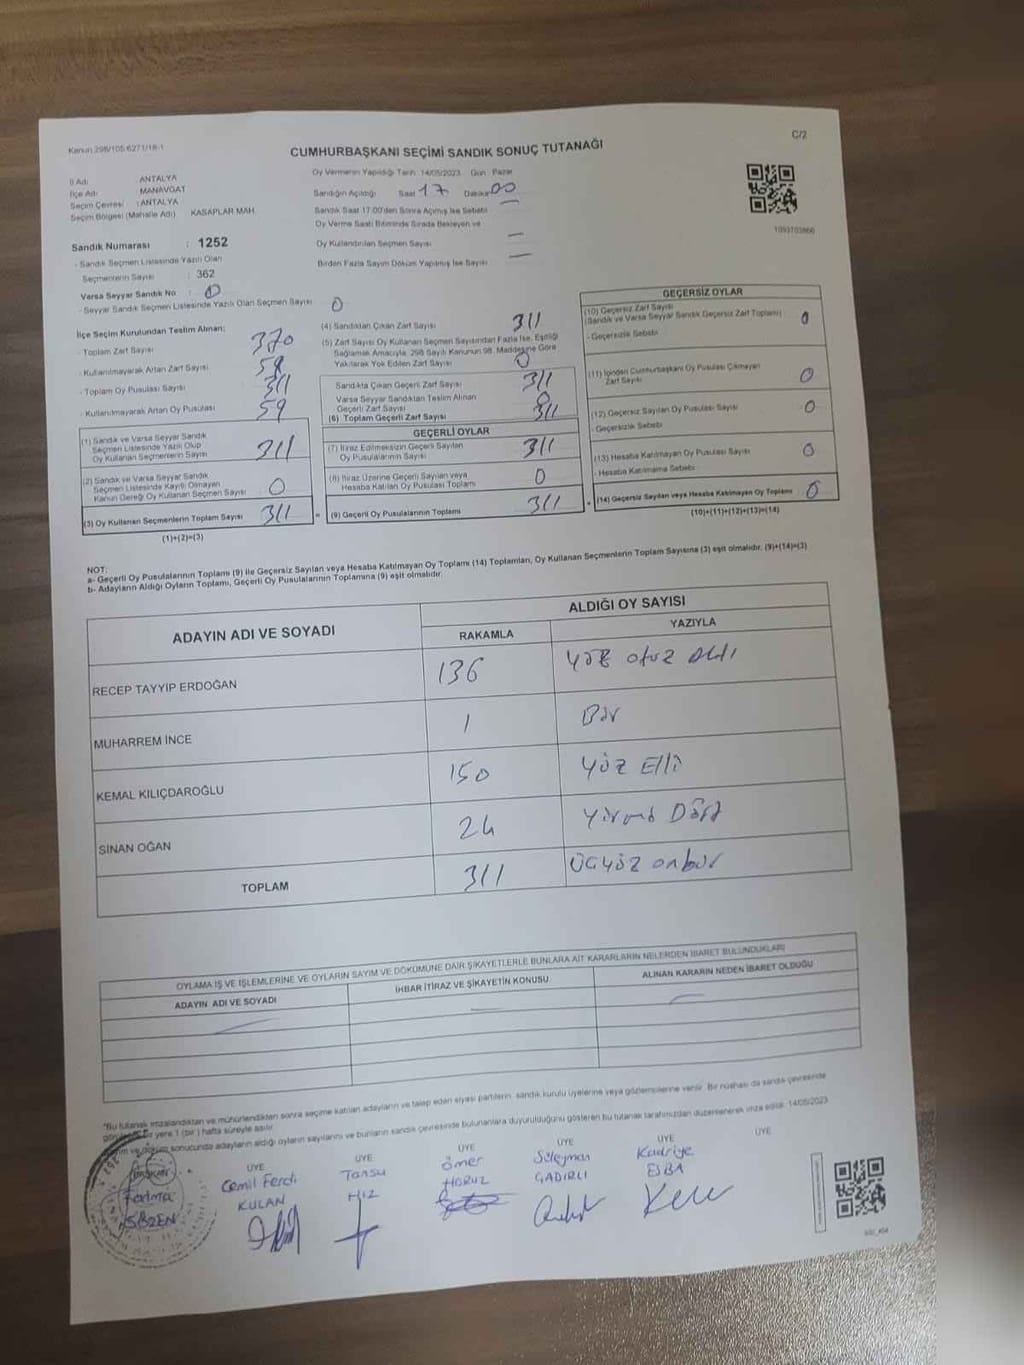 Kanun 298/105 6271/18-1
C/2
CUMHURBAŞKANI SEÇİMİ SANDIK SONUÇ TUTANAĞI
İl Adı : ANTALYA
İlçe Adı : MANAVGAT
Seçim Çevresi : ANTALYA
Seçim Bölgesi (Mahalle Adı) KASAPLAR MAH.
Oy Vermenin Yapıldığı Tarih 14/05/2023 Gün Pazar
Sandığın Açıldığı Saat 17 Dakika 00
Sandık Saat 17:00'den Sonra Açılmış İse Sebebi —
Oy Verme Saati Bitiminde Sırada Bekleyen ve
Oy Kullandırılan Seçmen Sayısı —
Birden Fazla Sayım Döküm Yapılmış İse Sayısı —
Sandık Numarası : 1252
- Sandık Seçmen Listesinde Yazılı Olan
Seçmenlerin Sayısı : 362
Varsa Seyyar Sandık No : 0
- Seyyar Sandık Seçmen Listesinde Yazılı Olan Seçmen Sayısı 0
İlçe Seçim Kurulundan Teslim Alınan;
- Toplam Zarf Sayısı 370
- Kullanılmayarak Artan Zarf Sayısı 59
- Toplam Oy Pusulası Sayısı 311
- Kullanılmayarak Artan Oy Pusulası 59
(1) Sandık ve Varsa Seyyar Sandık
Seçmen Listesinde Yazılı Olup
Oy Kullanan Seçmenlerin Sayısı 311
(2) Sandık ve Varsa Seyyar Sandık
Seçmen Listesinde Kayıtlı Olmayan
Kanun Gereği Oy Kullanan Seçmen Sayısı 0
(3) Oy Kullanan Seçmenlerin Toplam Sayısı 311
(1)+(2)=(3)
(4) Sandıktan Çıkan Zarf Sayısı 311
(5) Zarf Sayısı Oy Kullanan Seçmen Sayısından Fazla İse, Eşitliği
Sağlamak Amacıyla, 298 Sayılı Kanunun 98. Maddesine Göre
Yakılarak Yok Edilen Zarf Sayısı 0
Sandıkta Çıkan Geçerli Zarf Sayısı 311
Varsa Seyyar Sandıktan Teslim Alınan
Geçerli Zarf Sayısı 0
(6) Toplam Geçerli Zarf Sayısı 311
GEÇERLİ OYLAR
(7) İtiraz Edilmeksizin Geçerli Sayılan
Oy Pusulalarının Sayısı 311
(8) İtiraz Üzerine Geçerli Sayılan veya
Hesaba Katılan Oy Pusulası Toplamı 0
= (9) Geçerli Oy Pusulalarının Toplamı 311
1093703866
GEÇERSİZ OYLAR
(10) Geçersiz Zarf Sayısı
(Sandık ve Varsa Seyyar Sandık Geçersiz Zarf Toplamı) 0
- Geçersizlik Sebebi
(11) İçinden Cumhurbaşkanı Oy Pusulası Çıkmayan
Zarf Sayısı 0
(12) Geçersiz Sayılan Oy Pusulası Sayısı 0
- Geçersizlik Sebebi
(13) Hesaba Katılmayan Oy Pusulası Sayısı 0
- Hesaba Katılmama Sebebi
+ (14) Geçersiz Sayılan veya Hesaba Katılmayan Oy Toplamı 0
(10)+(11)+(12)+(13)=(14)
NOT:
a- Geçerli Oy Pusulalarının Toplamı (9) ile Geçersiz Sayılan veya Hesaba Katılmayan Oy Toplamı (14) Toplamları, Oy Kullanan Seçmenlerin Toplam Sayısına (3) eşit olmalıdır. (9)+(14)=(3)
b- Adayların Aldığı Oyların Toplamı, Geçerli Oy Pusulalarının Toplamına (9) eşit olmalıdır.
ADAYIN ADI VE SOYADI ALDIĞI OY SAYISI
RAKAMLA YAZIYLA
RECEP TAYYİP ERDOĞAN 136 Yüz otuz Altı
MUHARREM İNCE 1 Bir
KEMAL KILIÇDAROĞLU 150 Yüz Elli
SİNAN OĞAN 24 Yirmi Dört
TOPLAM 311 ÜÇyüz onbir
OYLAMA İŞ VE İŞLEMLERİNE VE OYLARIN SAYIM VE DÖKÜMÜNE DAİR ŞİKAYETLERLE BUNLARA AİT KARARLARIN NELERDEN İBARET BULUNDUKLARI
ADAYIN ADI VE SOYADI İHBAR İTİRAZ VE ŞİKAYETİN KONUSU ALINAN KARARIN NEDEN İBARET OLDUĞU
— — —
"Bu tutanak imzalandıktan ve mühürlendikten sonra seçime katılan adayların ve talep eden siyasi partilerin, sandık kurulu üyelerine veya gözlemcilerine verilir. Bir nüshası da sandık çevresinde
bir yere 1 (bir) hafta süreyle asılır.
ve döküm sonucunda adayların aldığı oyların sayılarını ve bunların sandık çevresinde bulunanlara duyurulduğunu gösteren bu tutanak tarafımızdan düzenlenerek imza edildi. 14/05/2023
BAŞKAN ÜYE ÜYE ÜYE ÜYE ÜYE ÜYE
Fatma Cemil Ferdi Tansu Ömer Süleyman Kadriye
KULAN HIZ HORUZ ÇADIRLI ESBA